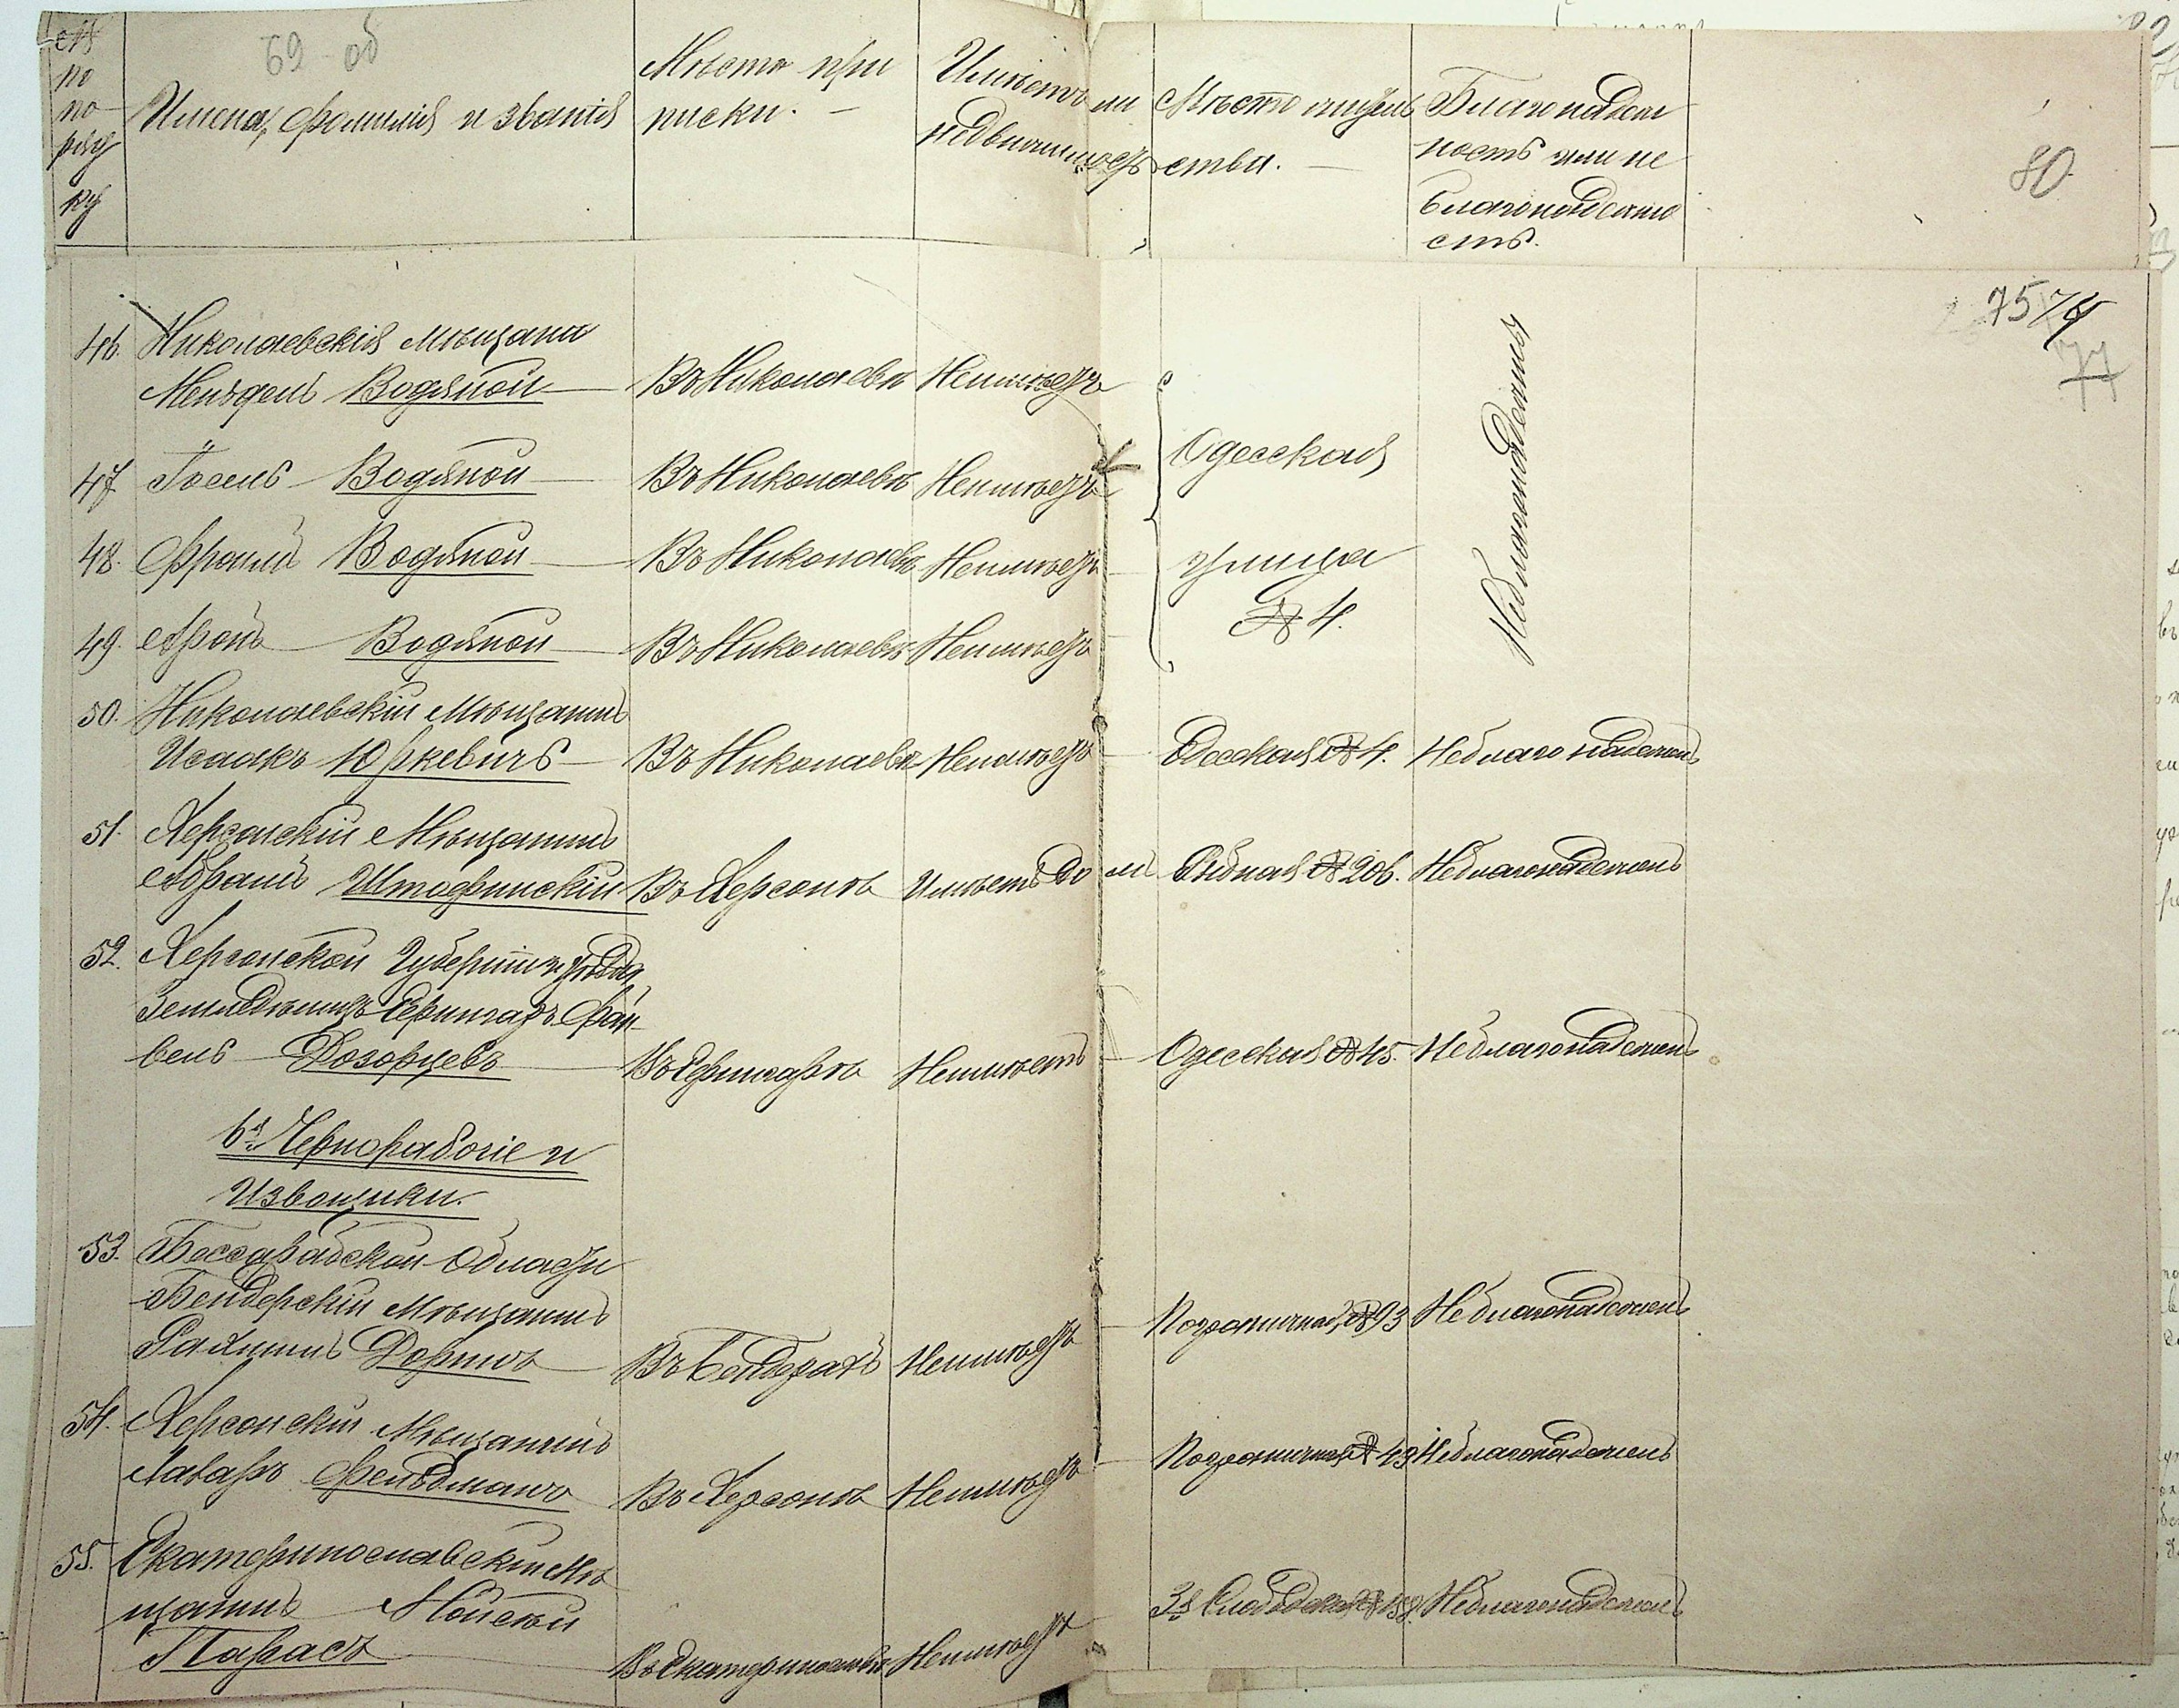 69 об
№ по по- ряд ку
Имена, фамилія и званія
Место при писки. —
Имѣетъ ли недвижимость
Место жительства. —
Благонадеж ность или не благонадежно сть.
80
75 74
77
46. Николаевскія Мѣщане
Мендель Водяной — Въ Николаевѣ Неимѣетъ
Одесская улица № 4.
Неблагонадежны
47 Іосель Водяной — Въ Николаевѣ Неимѣетъ
48. Фроимъ Водяной — Въ Николаевѣ Неимѣетъ
49. Аронъ — Водяной — Въ Николаевѣ Неимѣетъ
50. Николаевскій Мѣщанинъ
Исаакъ Юркевичъ — Въ Николаевѣ Неимѣетъ — Одесская № 4. Неблагонадеженъ
51. Херсонскій Мѣщанинъ
Абрамъ Въ Херсонѣ Имѣетъ домъ Рыбная № 206. Неблагонадеженъ
52. Херсонской Губерніи и уѣзда
Земледѣлецъ Ефингаръ Фай-
вель — Дозорцевъ — Въ Ефингарѣ Неимѣетъ — Одесская № 45. Неблагонадеженъ
6я Чернорабочіе и
Извощики.
53. Бессарабской Области
Бендерскій Мѣщанинъ
Рахмиль — Въ Бендерахъ Неимѣетъ — Пограничная, № 93 Неблагонадеженъ
54. Херсонскій Мѣщанинъ
Лазарь Фельдманъ Въ Херсонѣ Неимѣетъ — Пограничная № 49 Неблагонадеженъ
55. Екатеринославскій Мѣ
щанинъ Мойсей
Тарасъ Въ Екатеринославѣ Неимѣетъ 3я Слободская № Неблагонадеженъ